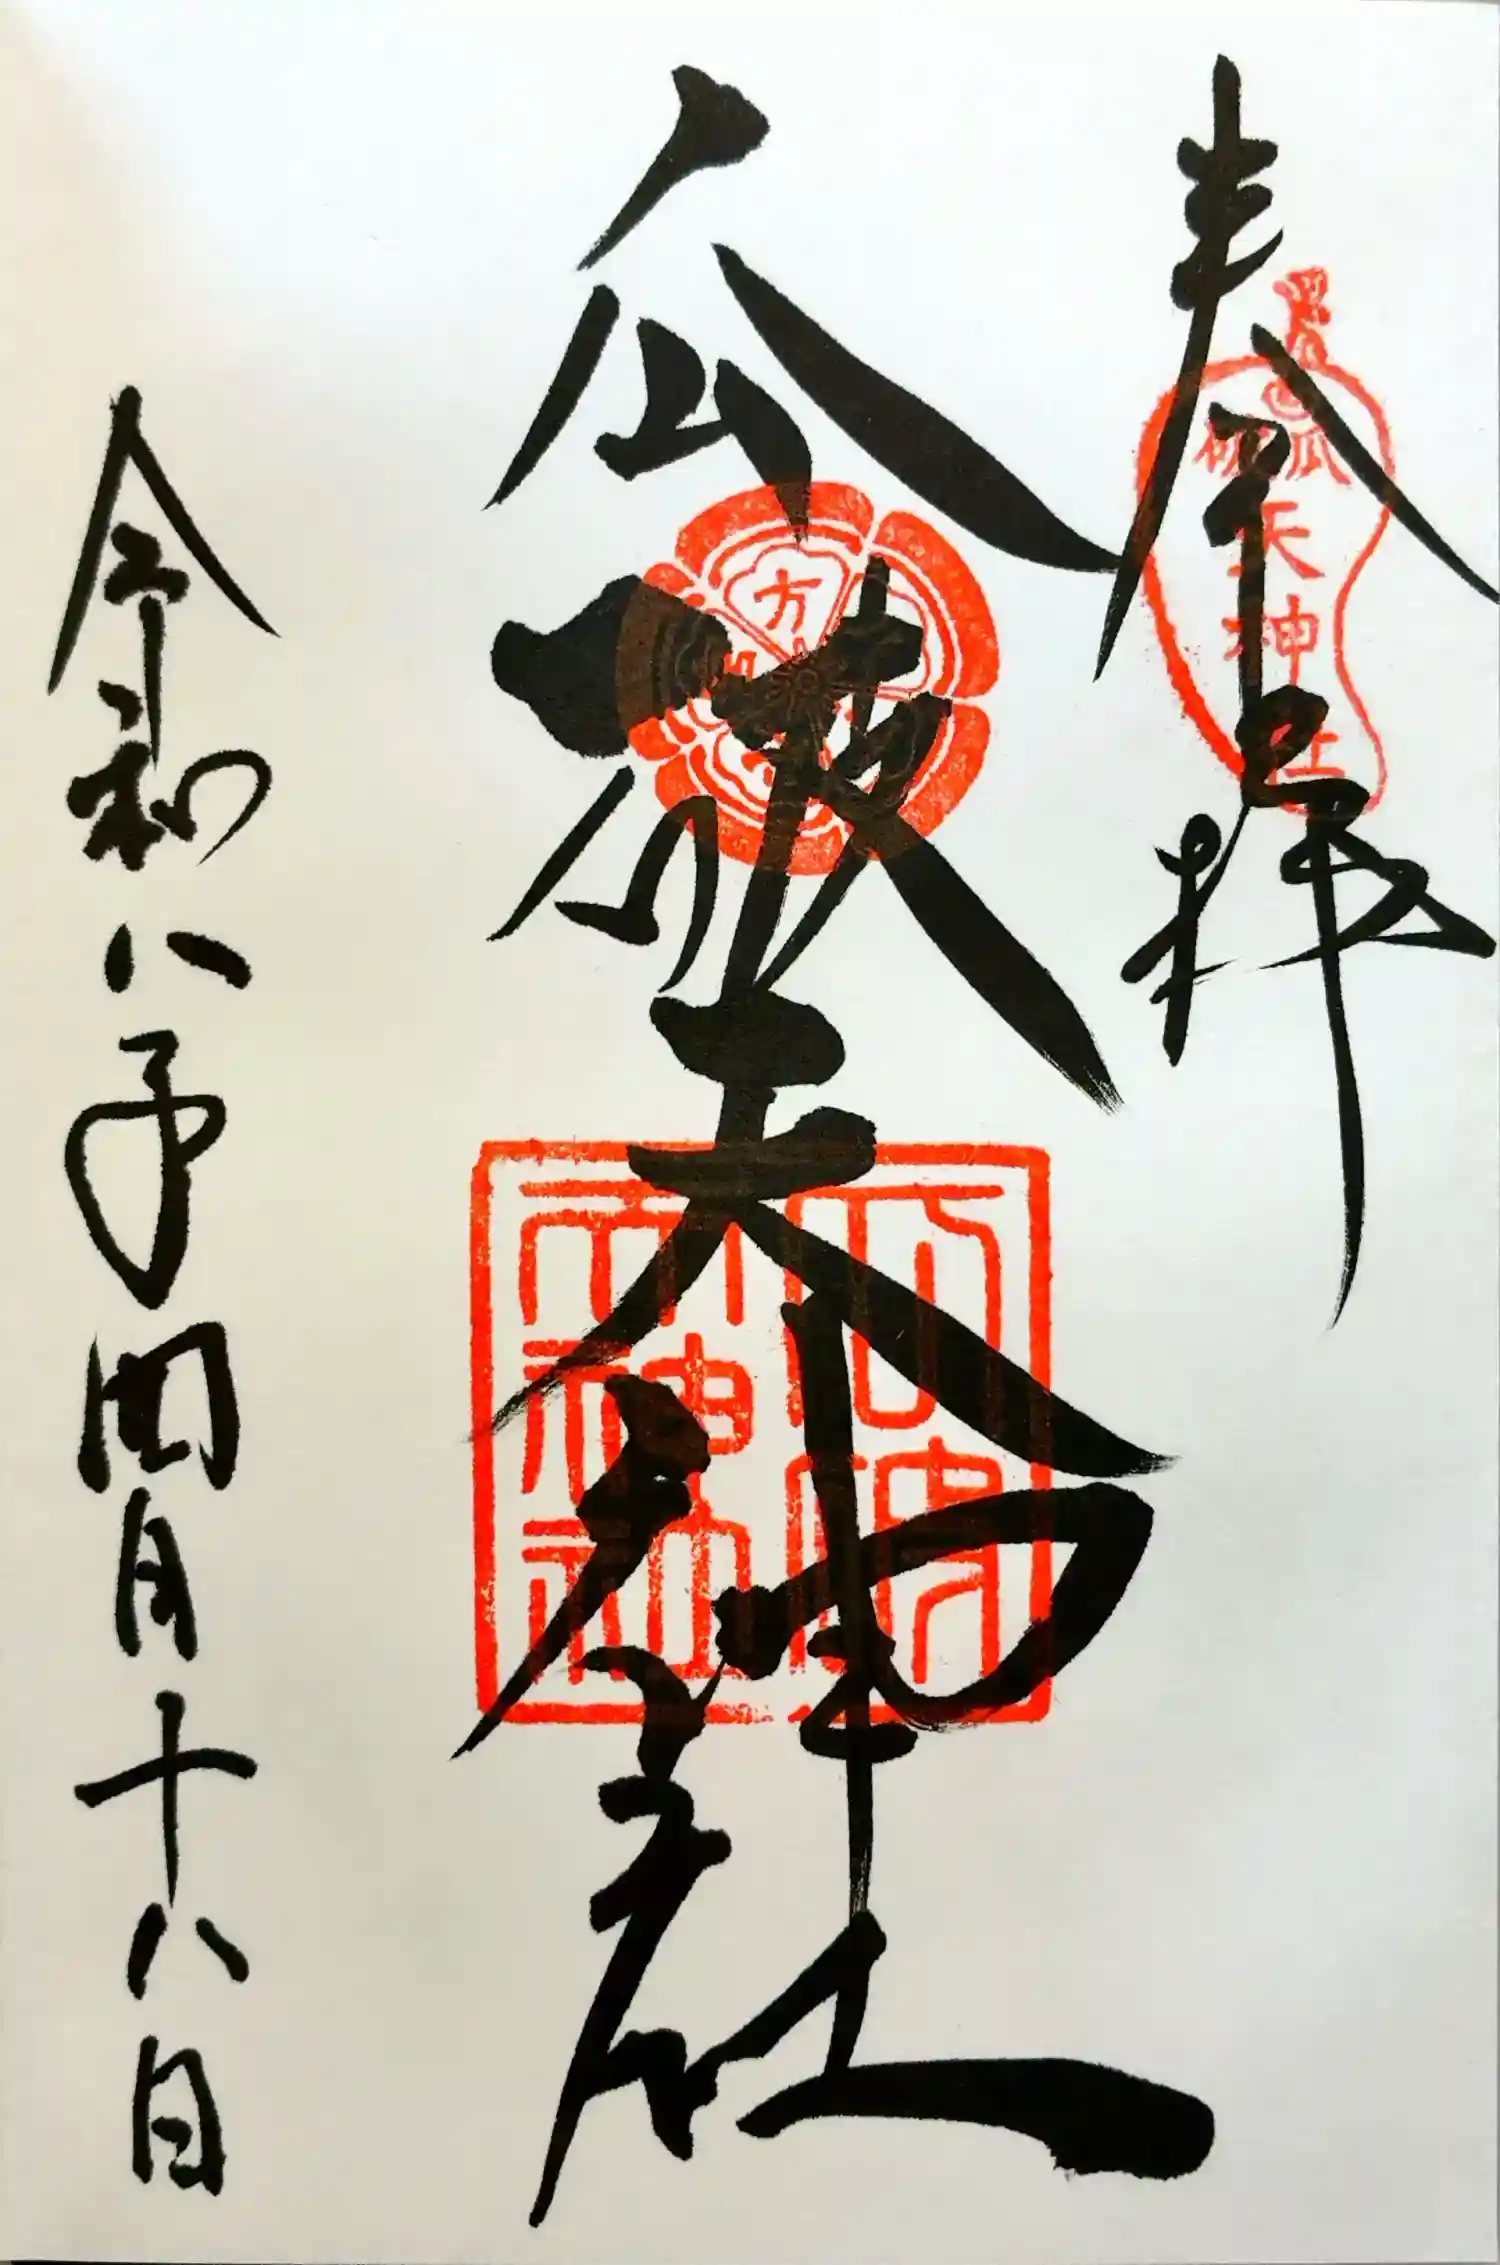 奉拝
瓜破天神社
瓜破天神社
瓜破天神社
令和八年四月十八日